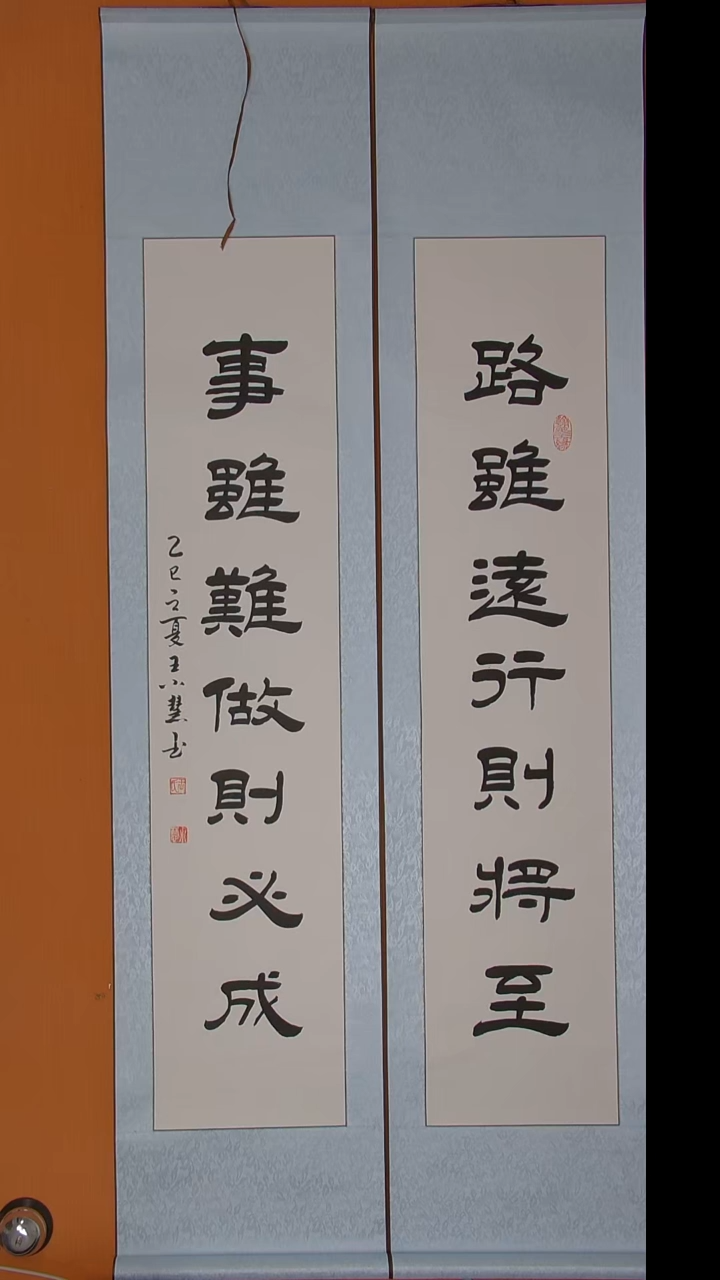 路雖遠行則將至
事雖難做則必成
乙巳之夏王小慧书